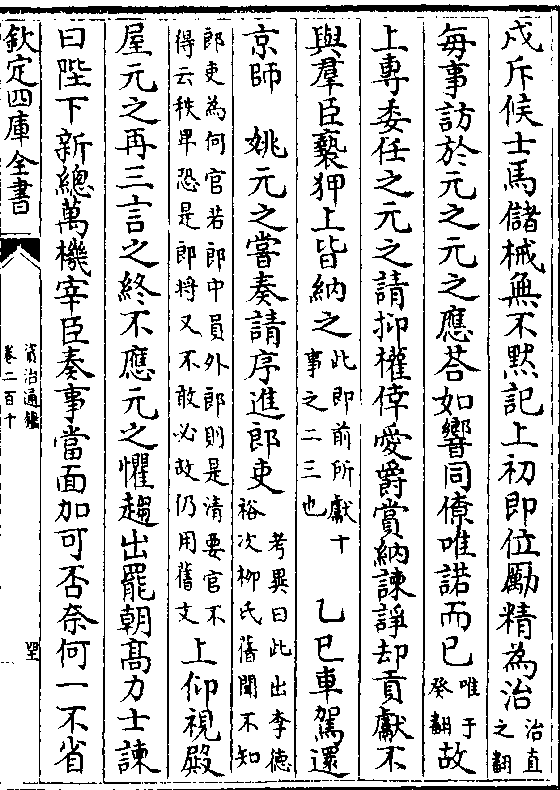 戍斥候士馬儲械無不黙記上初即位勵精為治治直之翻
每事訪於元之元之應荅如響同僚唯諾而已唯于癸翻故
上專委任之元之請抑權倖愛爵賞納諫諍却貢獻不
與羣臣褻狎上皆納之此即前所獻十事之二三也　乙巳車駕還
京師　姚元之嘗奏請序進郎吏考異曰此出李德裕次柳氏舊聞不知
郎吏為何官若郎中員外郎則是清要官不得云秩卑恐是郎將又不敢必故仍用舊文上仰視殿
屋元之再三言之終不應元之懼趨出罷朝髙力士諫
曰陛下新總萬機宰臣奏事當面加可否奈何一不省
欽定四庫全書
資治通鑑
卷二百十